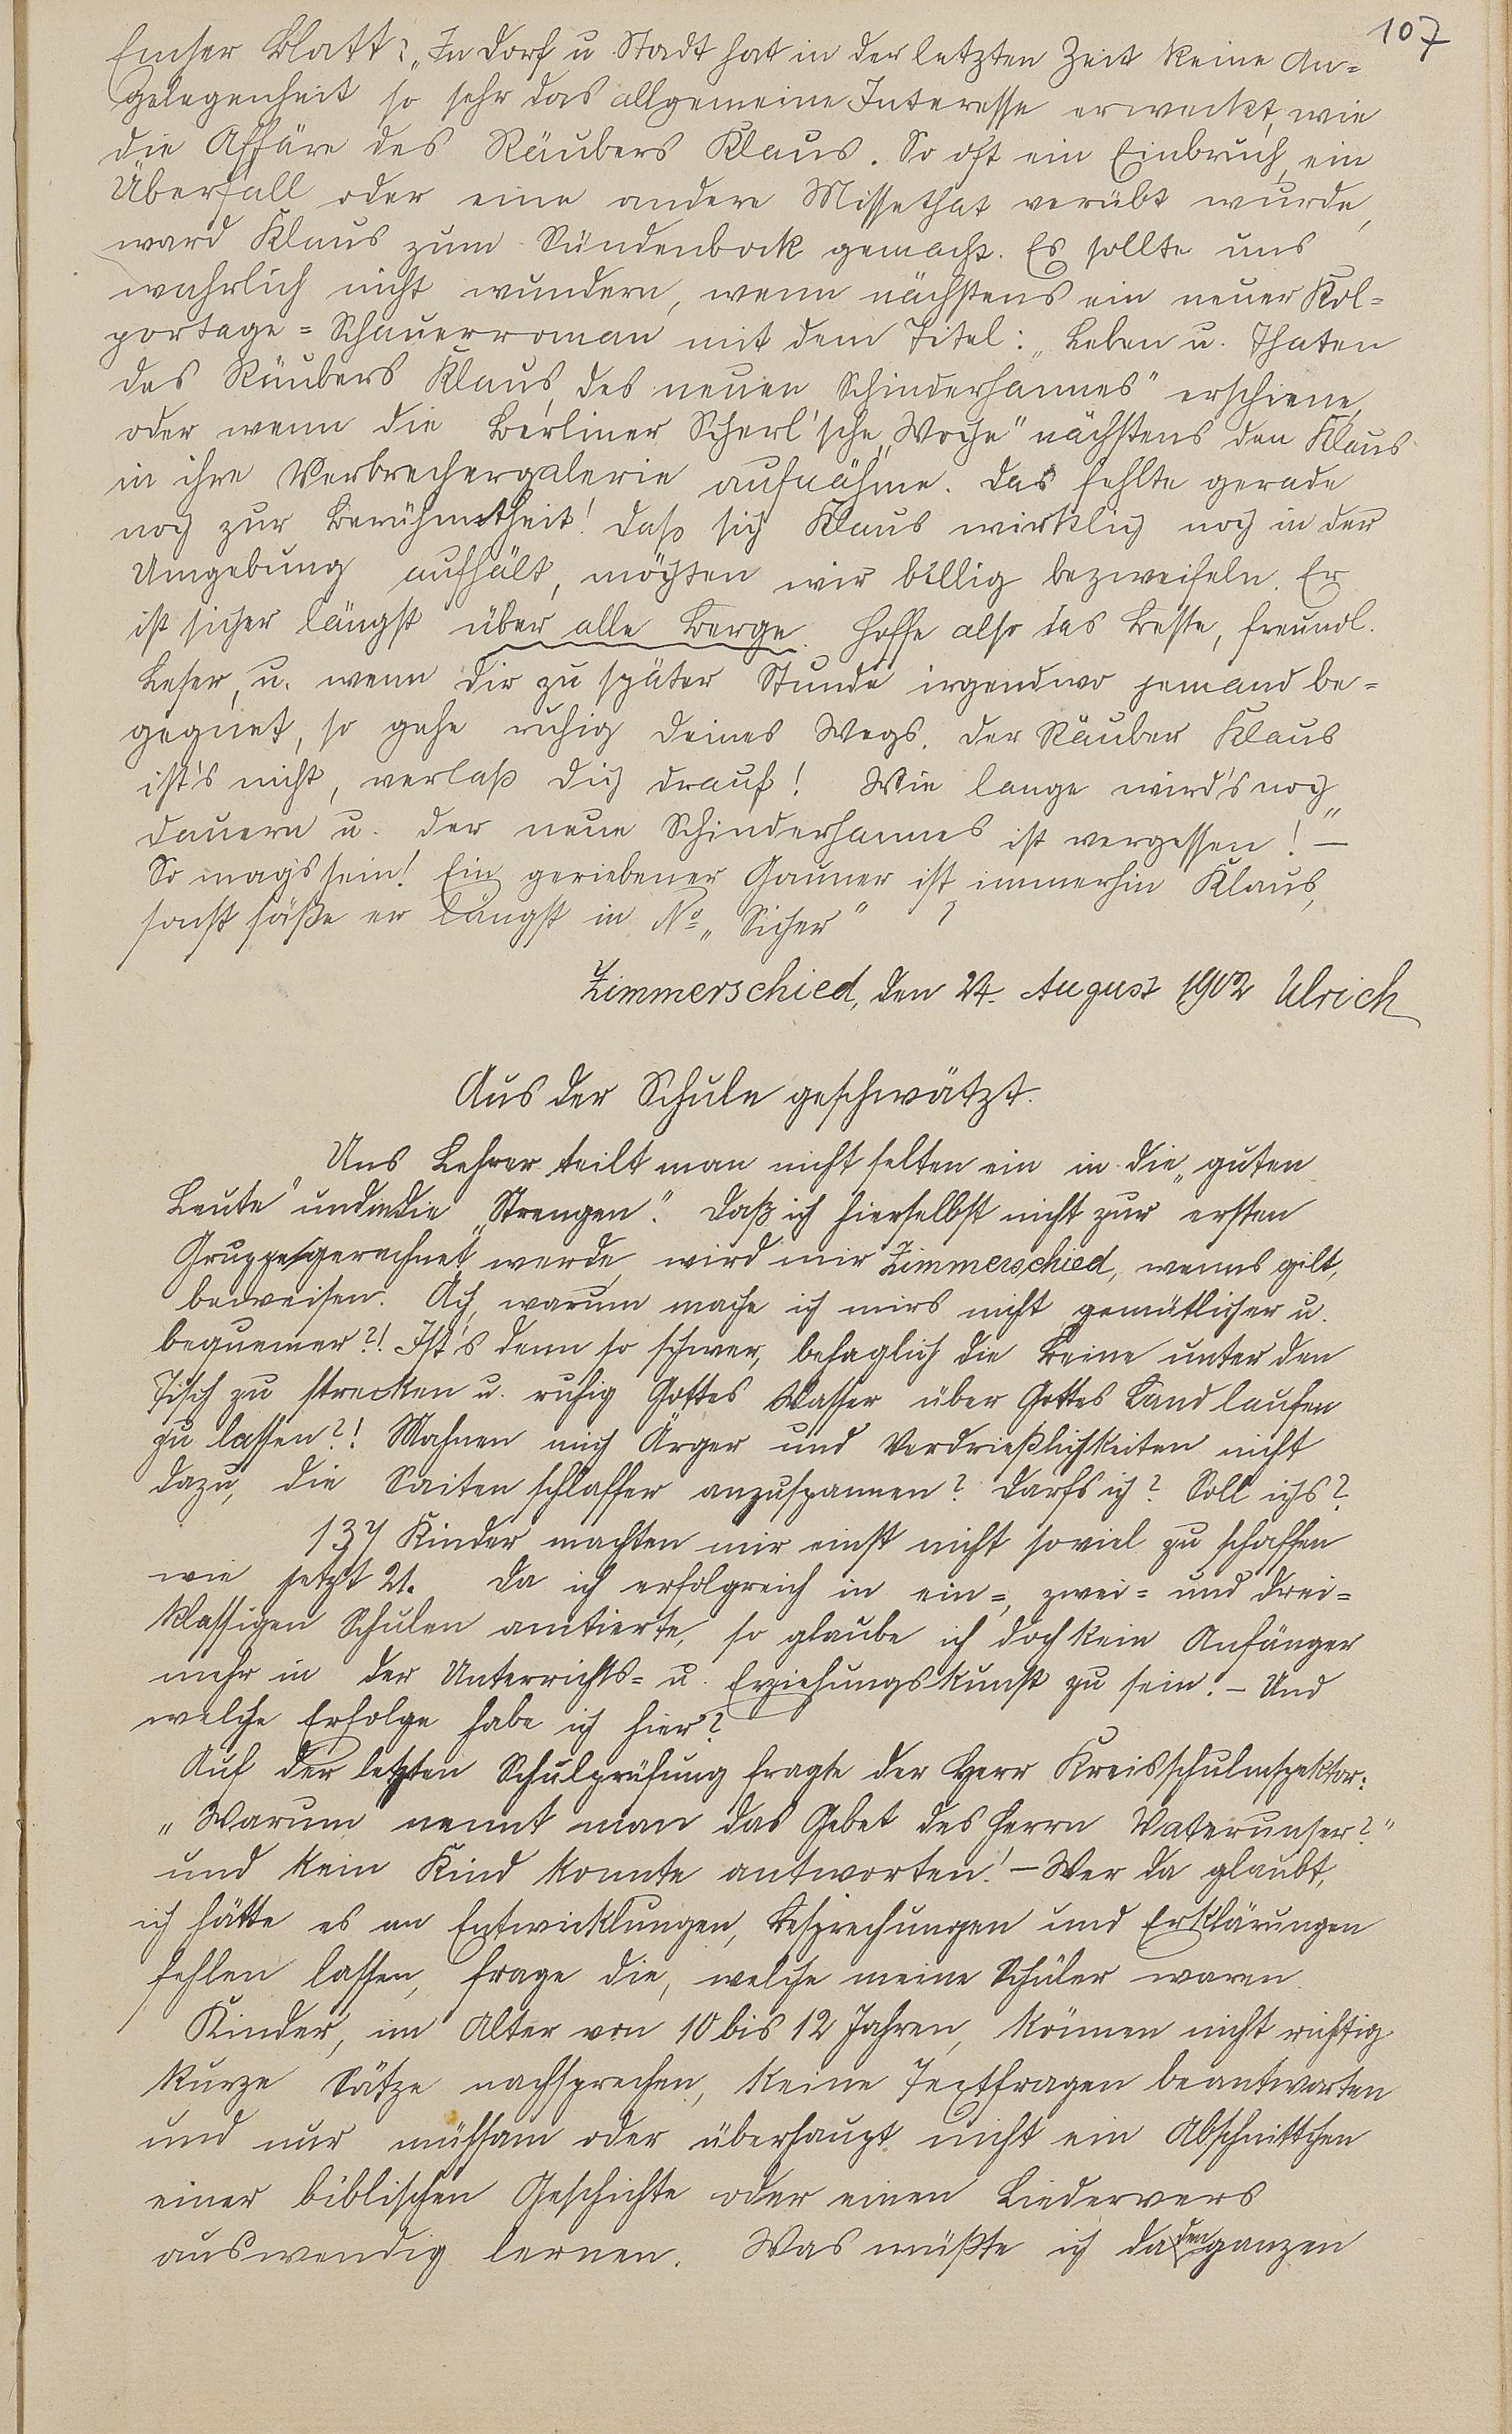 107
Emser Blatt: „In Dorf u Stadt hat in der letzten Zeit keine An=
gelegenheit so sehr das allgemeine Interesse erweckt, wie
die Affäre des Räubers Klaus. So oft ein Einbruch, ein
Überfall oder eine andere Missethat verübt wurde,
ward Klaus zum Sündenbock gemacht. Es sollte uns
wahrlich nicht wundern, wenn nächstens ein neuer Kol=
portage=Schauerroman mit dem Titel: „Leben u. Thaten
des Räubers Klaus, des neuen Schinderhannes" erschiene,
oder wenn die Berliner Scherl'sche „Woche" nächstens den Klaus
in ihre Verbrechergalerie aufnähme. Das fehlte gerade
noch zur Berühmtheit! Daß sich Klaus wirklich noch in der
Umgebung aufhält, möchten wir billig bezweifeln. Er
ist sicher längst über alle Berge. Hoffe also das Beste, freundl.
Leser, u. wenn dir zu später Stunde irgendwo jemand be=
gegnet, so gehe ruhig deines Wegs. Der Räuber Klaus
ist's nicht, verlaß dich drauf! Wie lange wird's noch
dauern u. der neue Schinderhannes ist vergessen!" —
So mag's sein! Ein geriebener Gauner ist immerhin Klaus,
sonst säße er längst in No „Sicher"
Zimmerschied, den 24. August 1902 Ulrich
Aus der Schule geschwätzt.
Uns Lehrer teilt man nicht selten ein in die „guten
Leute" und in die „Strengen". Daß ich hierselbst nicht zur ersten
Gruppe gerechnet werde, wird mir Zimmerschied, wenns gilt,
beweisen. Ach, warum mache ich mirs nicht gemütlicher u.
bequemer?! Ist's denn so schwer, behaglich die Beine unter den
Tisch zu strecken u. ruhig Gottes Wasser über Gottes Land laufen
zu lassen?! Mahnen mich Ärger und Verdrießlichkeiten nicht
dazu, die Saiten schlaffer anzuspannen? Darfs ich? Soll ichs?
137 Kinder machten mir einst nicht soviel zu schaffen
wie jetzt 21. Da ich erfolgreich in ein=, zwei= und drei=
klassigen Schulen amtierte, so glaube ich doch kein Anfänger
mehr in der Unterrichts= u. Erziehungskunst zu sein. — Und
welche Erfolge habe ich hier?
Auf der letzten Schulprüfung fragte der Herr Kreisschulinspektor:
„Warum nennt man das Gebet des Herrn Vaterunser?"
und kein Kind konnte antworten! — Wer da glaubt,
ich hätte es an Entwicklungen, Besprechungen und Erklärungen
fehlen lassen, frage die, welche meine Schüler waren.
Kinder, im Alter von 10 bis 12 Jahren, können nicht richtig
kurze Sätze nachsprechen, keine Textfragen beantworten
und nur mühsam oder überhaupt nicht ein Abschnittchen
einer biblischen Geschichte oder einen Liedervers
auswendig lernen. Was müßte ich da den ganzen